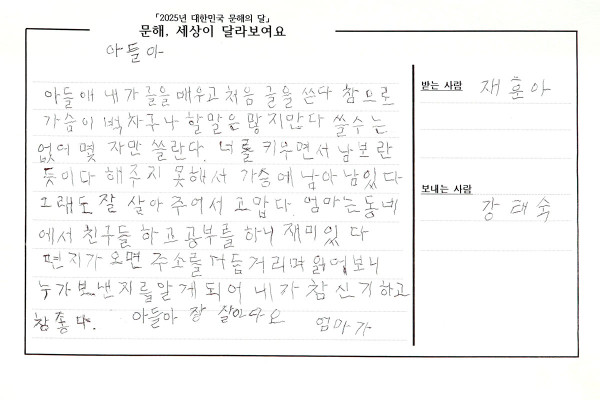 「2025년 대한민국 문해의 달」
문해, 세상이 달라보여요
아들아
아들애 내가 글을 배우고 처음 글을 쓴다 참으로
가슴이 벅차구나 할말은 많지만다 쓸수는
없어 몇 자만 쓸란다. 너를 키우면서 남보란
듯이다 해주지 못해서 가슴에 남아 남있다
그래도 잘 살아 주어서 고맙다. 엄마는 동네
에서 친구들 하고 공부를 하니 재미있 다
편지가 오면 주소를 더듬거리며 읽어보니
누가보낸지를 알게 되어 내가 참 신기하고
참 좋다. 아들아 잘 살아다오 엄마가
받는 사람 재훈아
보내는 사람
강태숙